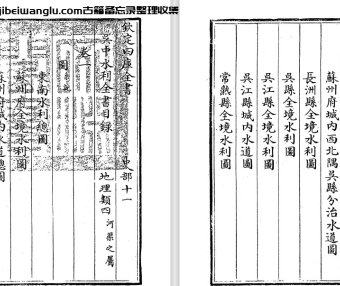 jibeiwanglu.com古籍备忘录整理收集
欽定四庫全書
史部十一
吳中水利全書目錄
地理類四 河渠之屬
卷一
圖
東南水利總圖
蘇州府全境水利圖
蘇州府城内水道總圖
蘇州府城内西北隅吳縣分治水道圖
長洲縣全境水利圖
吳縣全境水利圖
吳江縣全境水利圖
吳江縣城内水道圖
常熟縣全境水利圖